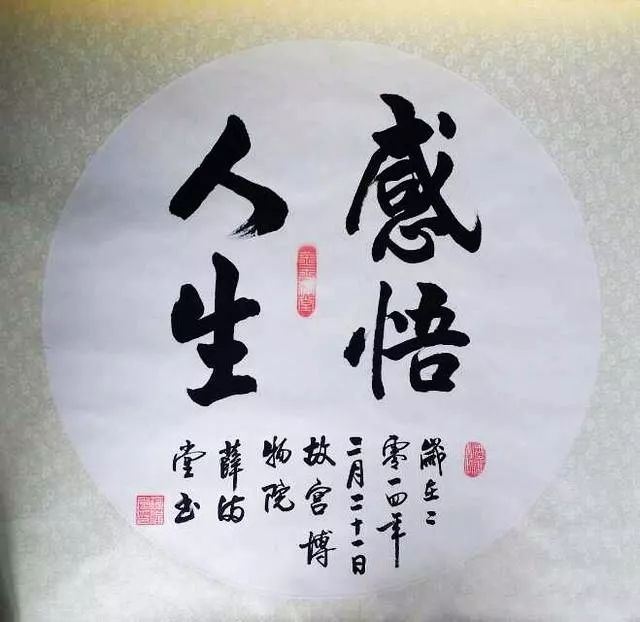 感悟
人生
岁在二
零一四年
二月二十一日
故宫博
物院
薛满
堂书